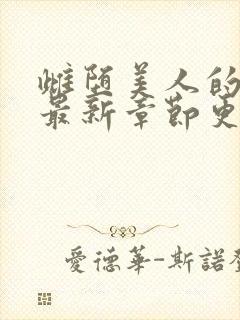 雌堕美人的
最新章节更
愛德華-斯諾登